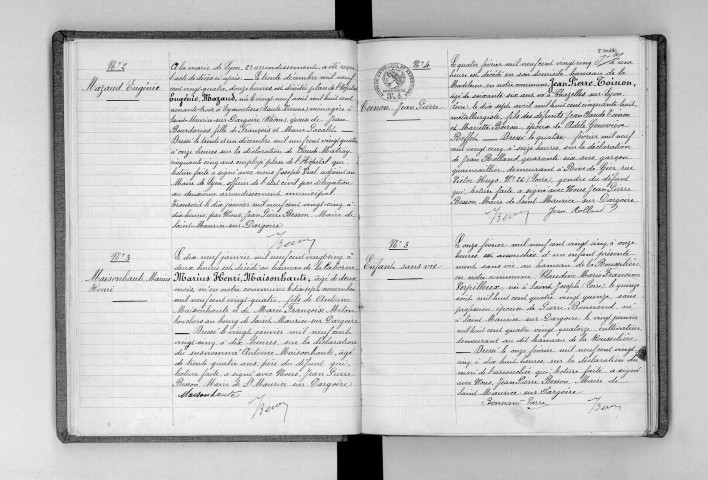 N° 2
Mazaud Eugénie
A la mairie de Lyon, 2e arrondissement, a été reçu
l'acte de décès ci-après : Le trente décembre mil neuf
cent vingt quatre, douze heures est décédée place de l'Hôpital
Eugénie Mazaud, née le vingt neuf août mil huit cent
(Haute Vienne) ménagère à
Saint-Maurice-sur-Dargoire (Rhône), épouse de Jean
Bourdarias, fille de François et Marie
Dressé le trente et un décembre mil neuf cent vingt quatre
à onze heures sur la déclaration de Claude
cinquante cinq ans, employé place de l'Hôpital qui
lecture faite a signé avec nous Joseph adjoint au
Maire de Lyon, officier de l'état civil par délégation
au deuxième arrondissement municipal
Transcrit le dix janvier mil neuf cent vingt-cinq à
dix heures, par Nous, Jean Pierre Besson Maire de
Saint-Maurice-sur-Dargoire
N° 3
Maisonhaute Marius
Henri
Le dix neuf janvier mil neuf cent vingt cinq à
deux heures est décédé au hameau de
Marius Henri, Maisonhaute, âgé de deux
mois, né en notre commune le dix sept novembre
mil neuf cent vingt-quatre, fils de Antoine
Maisonhaute et de Marie Françoise
bouchers au bourg de Saint-Maurice-sur-Dargoire
Dressé le vingt janvier mil neuf cent
vingt-cinq, à dix heures, sur la déclaration
du susnommé Antoine Maisonhaute, âgé
de trente quatre ans, père du défunt qui,
lecture faite, a signé avec Nous, Jean Pierre
Besson Maire de St Maurice sur Dargoire
Maisonhaute
N° 4
Toinon Jean Pierre
Le quatre février mil neuf cent vingt cinq à une
heure est décédé en son domicile hameau de la
Madeleine, en notre commune, Jean Pierre Toinon,
âgé de soixante six ans, né à Chazelles sur Lyon,
Loire, le dix sept avril mil huit cent cinquante huit,
métallurgiste, fils des défunts Jean Claude Toinon
et Mariette Boiron, époux de Adèle Geneviève
Dressé le quatre février mil neuf
cent vingt-cinq à seize heures, sur la déclaration
de Jean Rolland, quarante six ans, garçon
quincaillier, demeurant à Rive de Gier, rue
Victor Hugo, N° 26 (Loire), gendre du défunt
qui, lecture faite, a signé avec Nous Jean Pierre
Besson, Maire de Saint Maurice sur Dargoire
Jean Rolland
N° 5
Enfant sans vie
Le onze février mil neuf cent vingt cinq, à onze
heures est accouchée d'un enfant présenté
sans vie, au hameau de la
en notre commune, Claudine Marie Françoise
née à Sainte Joseph (Loire), le quinze
août mil huit cent quatre vingt quinze, sans
profession, épouse de Pierre Bonnard, né
à Saint Maurice sur Dargoire le vingt janvier
mil huit cent quatre vingt quatorze, cultivateur,
demeurant au dit hameau de la
Dressé le onze février mil neuf cent vingt
cinq, à dix huit heures, sur la déclaration du
mari de l'accouchée qui, lecture faite, a signé
avec Nous, Jean Pierre Besson, Maire de
Saint-Maurice sur Dargoire
Bonnard Pierre